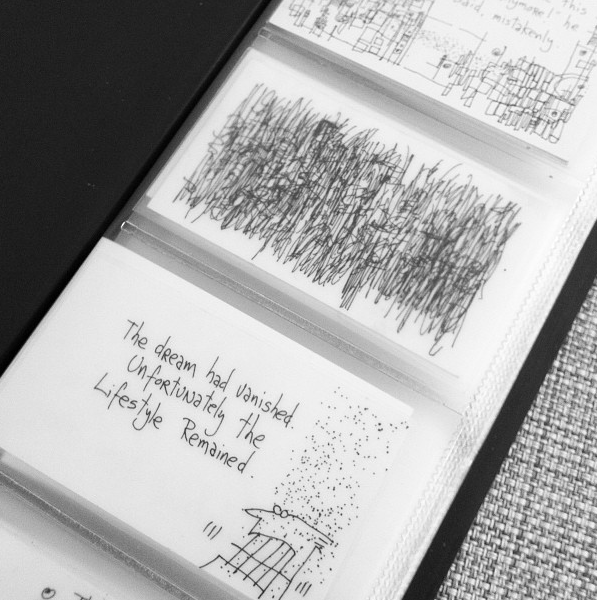 this
anymore!" he
said, mistakenly.
The dream had vanished.
Unfortunately the
Lifestyle Remained.